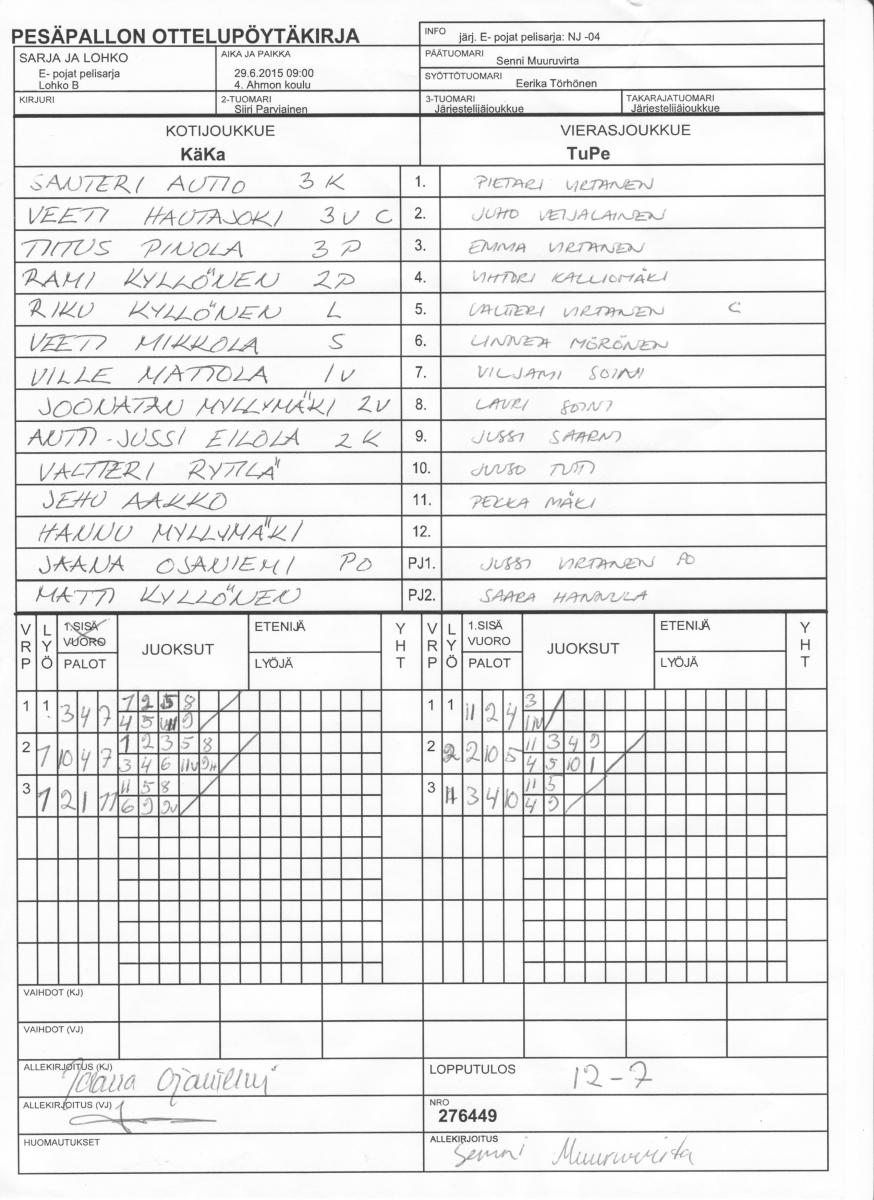 PESÄPALLON OTTELUPÖYTÄKIRJA
INFO järj. E- pojat pelisarja: NJ -04
SARJA JA LOHKO
E- pojat pelisarja
Lohko B
AIKA JA PAIKKA
29.6.2015 09:00
4. Ahmon koulu
PÄÄTUOMARI
Senni Muuruvirta
SYÖTTÖTUOMARI
Eerika Törhönen
KIRJURI
2-TUOMARI
Siiri Parviainen
3-TUOMARI
Järjestelijäjoukkue
TAKARAJATUOMARI
Järjestelijäjoukkue
KOTIJOUKKUE
KäKa
VIERASJOUKKUE
TuPe
SANTERI AUTIO 3K 1. PIETARI VIRTANEN
VEETI HAUTAJOKI 3V C 2. JUHO VEIJALAINEN
TIITUS PINOLA 3P 3. EMMA VIRTANEN
RAMI KYLLÖNEN 2P 4. VIHTORI KALLIOMÄKI
RIKU KYLLÖNEN L 5. VALTTERI VIRTANEN C
VEETI MIKKOLA S 6. LINNEA MÖRÖNEN
VILLE MATTOLA 1V 7. VILJAMI SOINI
JOONATAN MYLLYMÄKI 2V 8. LAURI SOINI
ANTTI-JUSSI EILOLA 2K 9. JUSSI SAARNI
VALTTERI RYTILÄ 10. JUUSO TUTTI
JEHU AAKKO 11. PEKKA MÄKI
HANNU MYLLYMÄKI 12.
JAANA OJANIEMI PO PJ1. JUSSI VIRTANEN PO
MATTI KYLLÖNEN PJ2. SAARA HANNULA
VRP LYÖ 1.SISÄ VUORO PALOT JUOKSUT ETENIJÄ LYÖJÄ YHT VRP LYÖ 1.SISÄ VUORO PALOT JUOKSUT ETENIJÄ LYÖJÄ YHT
1 1 3 4 7 1 2 5 8 1 1 11 2 4 3
4 5 9 1V
2 1 10 4 7 1 2 3 5 8 2 2 2 10 5 11 3 4 9
3 4 6 11V 4 5 10 1
3 1 2 1 11 11 5 8 3 11 3 4 10 11 5
6 9 9V 4 9
VAIHDOT (KJ)
VAIHDOT (VJ)
ALLEKIRJOITUS (KJ) Jaana Ojaniemi
LOPPUTULOS 12-7
ALLEKIRJOITUS (VJ)
NRO
276449
HUOMAUTUKSET
ALLEKIRJOITUS
Senni Muuruvirta